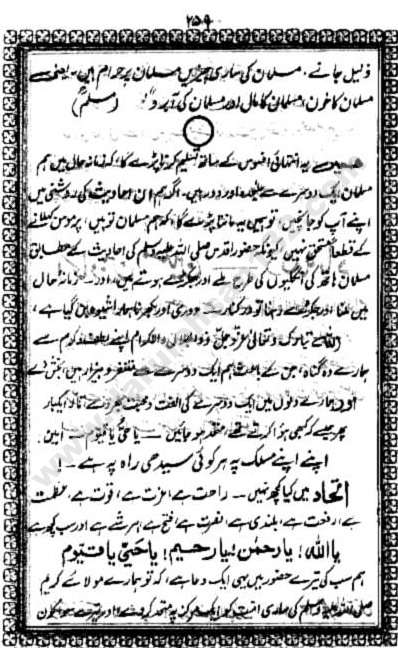 ۲۵۹
ذلیل جانے۔ مسلمان کی ساری چیزیں مسلمان پر حرام ہیں۔ یعنی
مسلمان کا خون، مسلمان کا مال اور مسلمان کی آبرو" (مسلم)
ہمیں یہ انتہائی افسوس کے ساتھ تسلیم کرنا پڑے گا، کہ زمانہ حال میں ہم
مسلمان ایک دوسرے سے علیحدہ اور دور ہیں۔ اگر ہم ان احادیث کی روشنی میں
اپنے آپ کو جانچیں تو ہمیں یہ ماننا پڑے گا، کہ ہم مسلمان تو ہیں، پر مومن کہلانے
کے قطعاً مستحق نہیں کیونکہ حضور اقدس صلی اللہ علیہ وسلم کی احادیث کے مطابق
مسلمان ہاتھ کی انگلیوں کی طرح ملے اور جکڑے ہوتے ہیں، اور زمانہ حال
میں ملنا اور جکڑے رہنا تو درکنار دوری اور بکھرنا ہمارا شیوہ بن گیا ہے،
اللہ تبارک و تعالیٰ عز و جل ذوالجلال والاکرام اپنے لطف و کرم سے
ہمارے وہ گناہ، جن کے باعث ہم ایک دوسرے سے متنفر و بیزار ہیں، بخش دے
اور ہمارے دلوں میں ایک دوسرے کی الفت و محبت بھر دے تا کہ ایکبار
پھر جیسے کہ کبھی ہوا کرتے تھے، متحد ہو جائیں — یا حی یا قیوم۔ آمین۔
اپنے اپنے مسلک پہ ہر کوئی سیدھی راہ پہ ہے — !
اتحاد میں کیا کچھ نہیں — راحت ہے، عزت ہے، قوت ہے، عظمت
ہے، رفعت ہے، بلندی ہے، نصرت ہے، فتح ہے، ہر شے ہے اور سب کچھ ہے
یا اللہ! یا رحمٰن! یا رحیم! یا حیّ! یا قیوم
ہم سب کی تیرے حضور میں یہی ایک دعا ہے، کہ تو ہمارے مولائے کریم
صلی اللہ علیہ وسلم کی ساری امت کو ایک مرکز پہ متحد کر دے اور تیرے